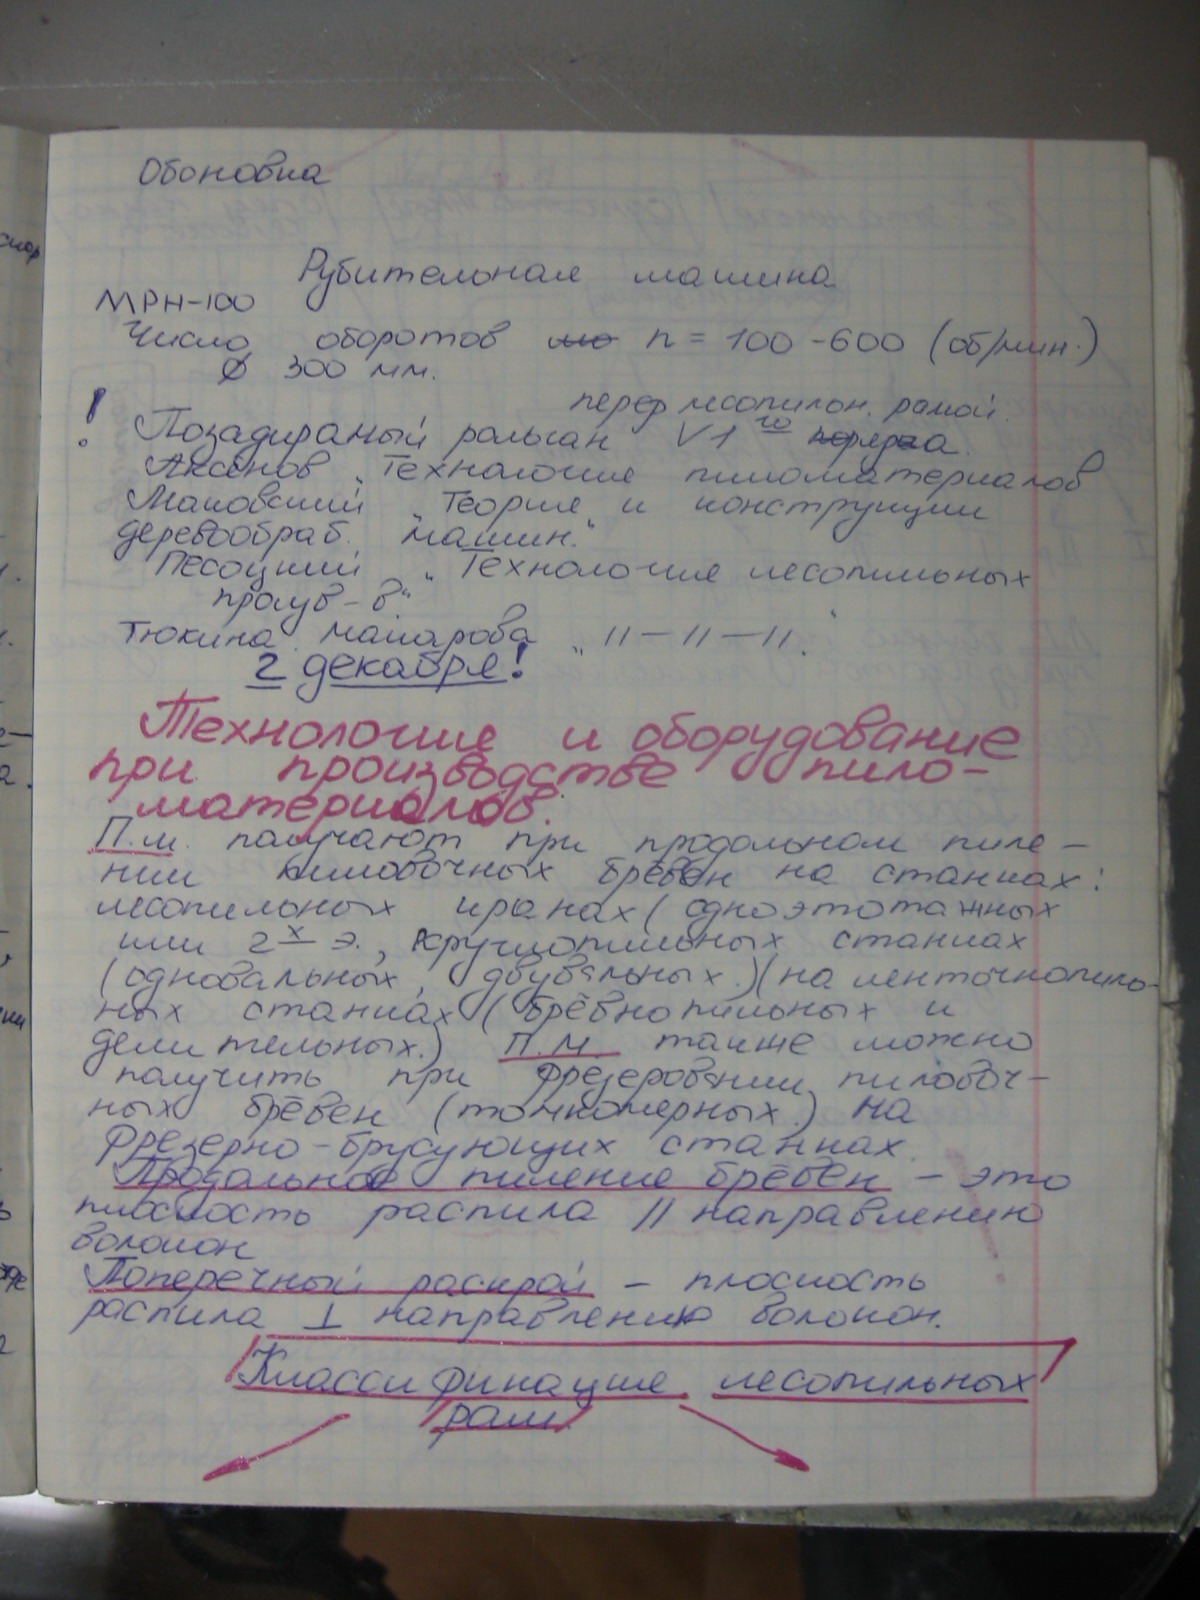 Обоновка
Рубительная машина
МРН-100
Число оборотов n = 100-600 (об/мин.)
∅ 300 мм.
перед лесопилон. рамой.
! Позадираный рольган V 1го
Аксенов „Технология пиломатериалов
Маковский „Теория и конструкции
деревообраб. машин."
Песоцкий „Технология лесопильных
произв-в."
Тюкина Макарова „ 11 — 11 — 11."
2 декабря!
Технология и оборудование
при производстве пило-
материалов.
П.м. получают при продольном пиле-
нии пиловочных брёвен на станках:
лесопильных (одноэтотажных
или 2х э., круглопильных станках
(одновальных, двувальных.) (на ленточнопиль-
ных станках (бревнопильных и
делительных.) П.М. также можно
получить при фрезеровании пиловоч-
ных брёвен (тонкомерных) на
фрезерно-брусующих станках.
Продольное пиление брёвен – это
плоскость распила || направлению
волокон
Поперечный раскрой – плоскость
распила ⊥ направлению волокон.
Классификация лесопильных
рам.